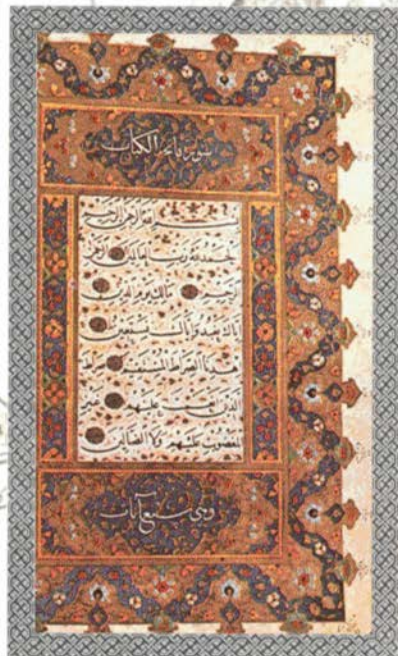 سورة فاتحة الكتاب
بسم الله الرحمن الرحيم
الحمد لله رب العالمين الرحمن
الرحيم مالك يوم الدين
اياك نعبد و اياك نستعين
اهدنا الصراط المستقيم صراط
الذين انعمت عليهم غير
المغضوب عليهم ولا الضالين
وهي سبع آيات